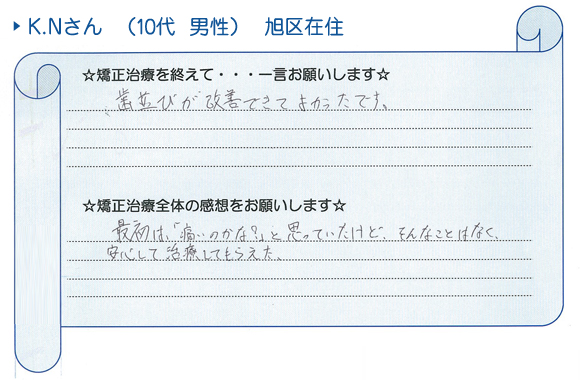 K.Nさん （10代 男性） 旭区在住
☆矯正治療を終えて・・・一言お願いします☆
歯並びが改善できてよかったです。
☆矯正治療全体の感想をお願いします☆
最初は、「痛いのかな?」と思っていたけど、そんなことはなく、
安心して治療してもらえた。